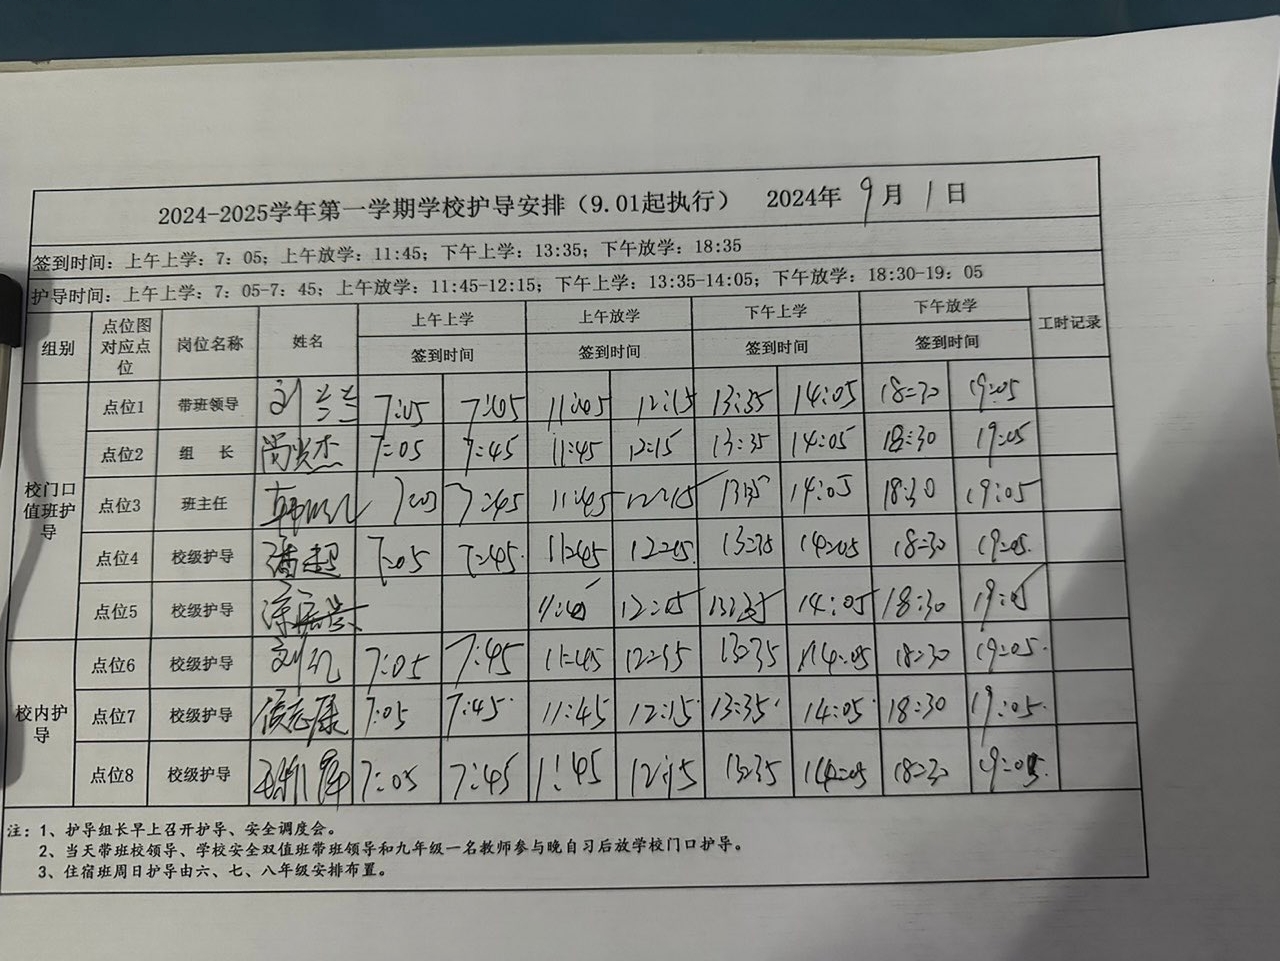 2024-2025学年第一学期学校护导安排（9.01起执行） 2024年 9月 1日
签到时间：上午上学：7：05；上午放学：11:45；下午上学：13:35；下午放学：18:35
护导时间：上午上学：7：05-7：45；上午放学：11:45-12:15；下午上学：13:35-14:05；下午放学：18:30-19：05
组别 点位图对应点位 岗位名称 姓名 上午上学 上午放学 下午上学 下午放学 工时记录
签到时间 签到时间 签到时间 签到时间
校门口值班护导
点位1 带班领导 刘兰兰 7:05 7:05 11:05 12:15 13:35 14:05 18:30 19:05
点位2 组 长 尚 杰 7:05 7:45 11:45 12:15 13:35 14:05 18:30 19:05
点位3 班主任 韩 7:05 7:45 11:45 12:15 13:35 14:05 18:30 19:05
点位4 校级护导 潘超 7:05 7:45 11:45 12:15 13:35 14:05 18:30 19:05
点位5 校级护导 11:45 12:15 13:35 14:05 18:30 19:05
校内护导
点位6 校级护导 刘 7:05 7:45 11:45 12:15 13:35 14:05 18:30 19:05
点位7 校级护导 侯志康 7:05 7:45 11:45 12:15 13:35 14:05 18:30 19:05
点位8 校级护导 7:05 7:45 11:45 12:15 13:35 14:05 18:30 19:05
注：1、护导组长早上召开护导、安全调度会。
2、当天带班校领导、学校安全双值班带班领导和九年级一名教师参与晚自习后放学校门口护导。
3、住宿班周日护导由六、七、八年级安排布置。